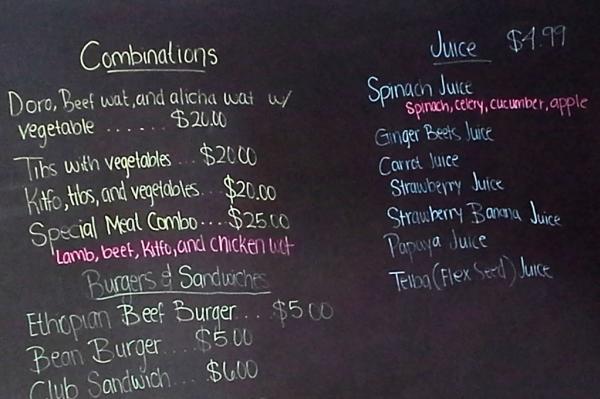 Combinations
Doro, Beef wat, and alicha wat w/
vegetable ...... $20.00
Tibs with vegetables ... $20.00
Kitfo, tibs, and vegetables... $20.00
Special Meal Combo.... $25.00
Lamb, beef, kitfo, and chicken wat
Burgers & Sandwiches
Ethiopian Beef Burger.... $5.00
Bean Burger.... $5.00
Club Sandwich.... $6.00
Juice $4.99
Spinach Juice
Spinach, celery, cucumber, apple
Ginger Beets Juice
Carrot Juice
Strawberry Juice
Strawberry Banana Juice
Papaya Juice
Telba (Flex Seed) Juice